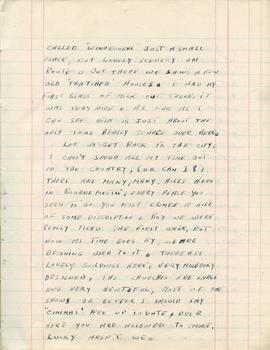 CALLED "WINBROUGH" JUST A SMALL
PLACE, BUT LOVELY SCENERY ON
ROUTE & OUT THERE WE SAW A FEW
OLD "THATCHED" HOUSES. I HAD MY
FIRST GLASS OF MILK OUT THERE. IT
WAS VERY NICE & AS FAR AS I
CAN SEE MILK IS JUST ABOUT THE
ONLY THING REALLY SCARCE OVER HERE.
LET US GET BACK TO THE CITY,
I CAN'T SPEND ALL MY TIME OUT
IN THE COUNTRY, (OR CAN I?).
THERE ARE MANY, MANY, HILLS HERE
IN BOURNEMOUTH, EVERY PLACE YOU
SEEM TO GO YOU MUST CLIMB A HILL
OF SOME DISCRIPTION & BOY WE WERE
REALLY TIRED THE FIRST WEEK, BUT
NOW AS TIME GOES BY, WE ARE
BECOMING USED TO IT. THERE ARE
LOVELY BUILDINGS HERE, VERY MODERNLY
DESIGNED, THE CHURCHES ARE LARGE
AND VERY BEAUTIFUL, MOST OF THE
SHOWS OR BETTER I SHOULD SAY
"CINEMAS" ARE UP TO DATE, & OVER
HERE YOU ARE ALLOWED TO SMOKE,
LUCKY AREN'T WE.